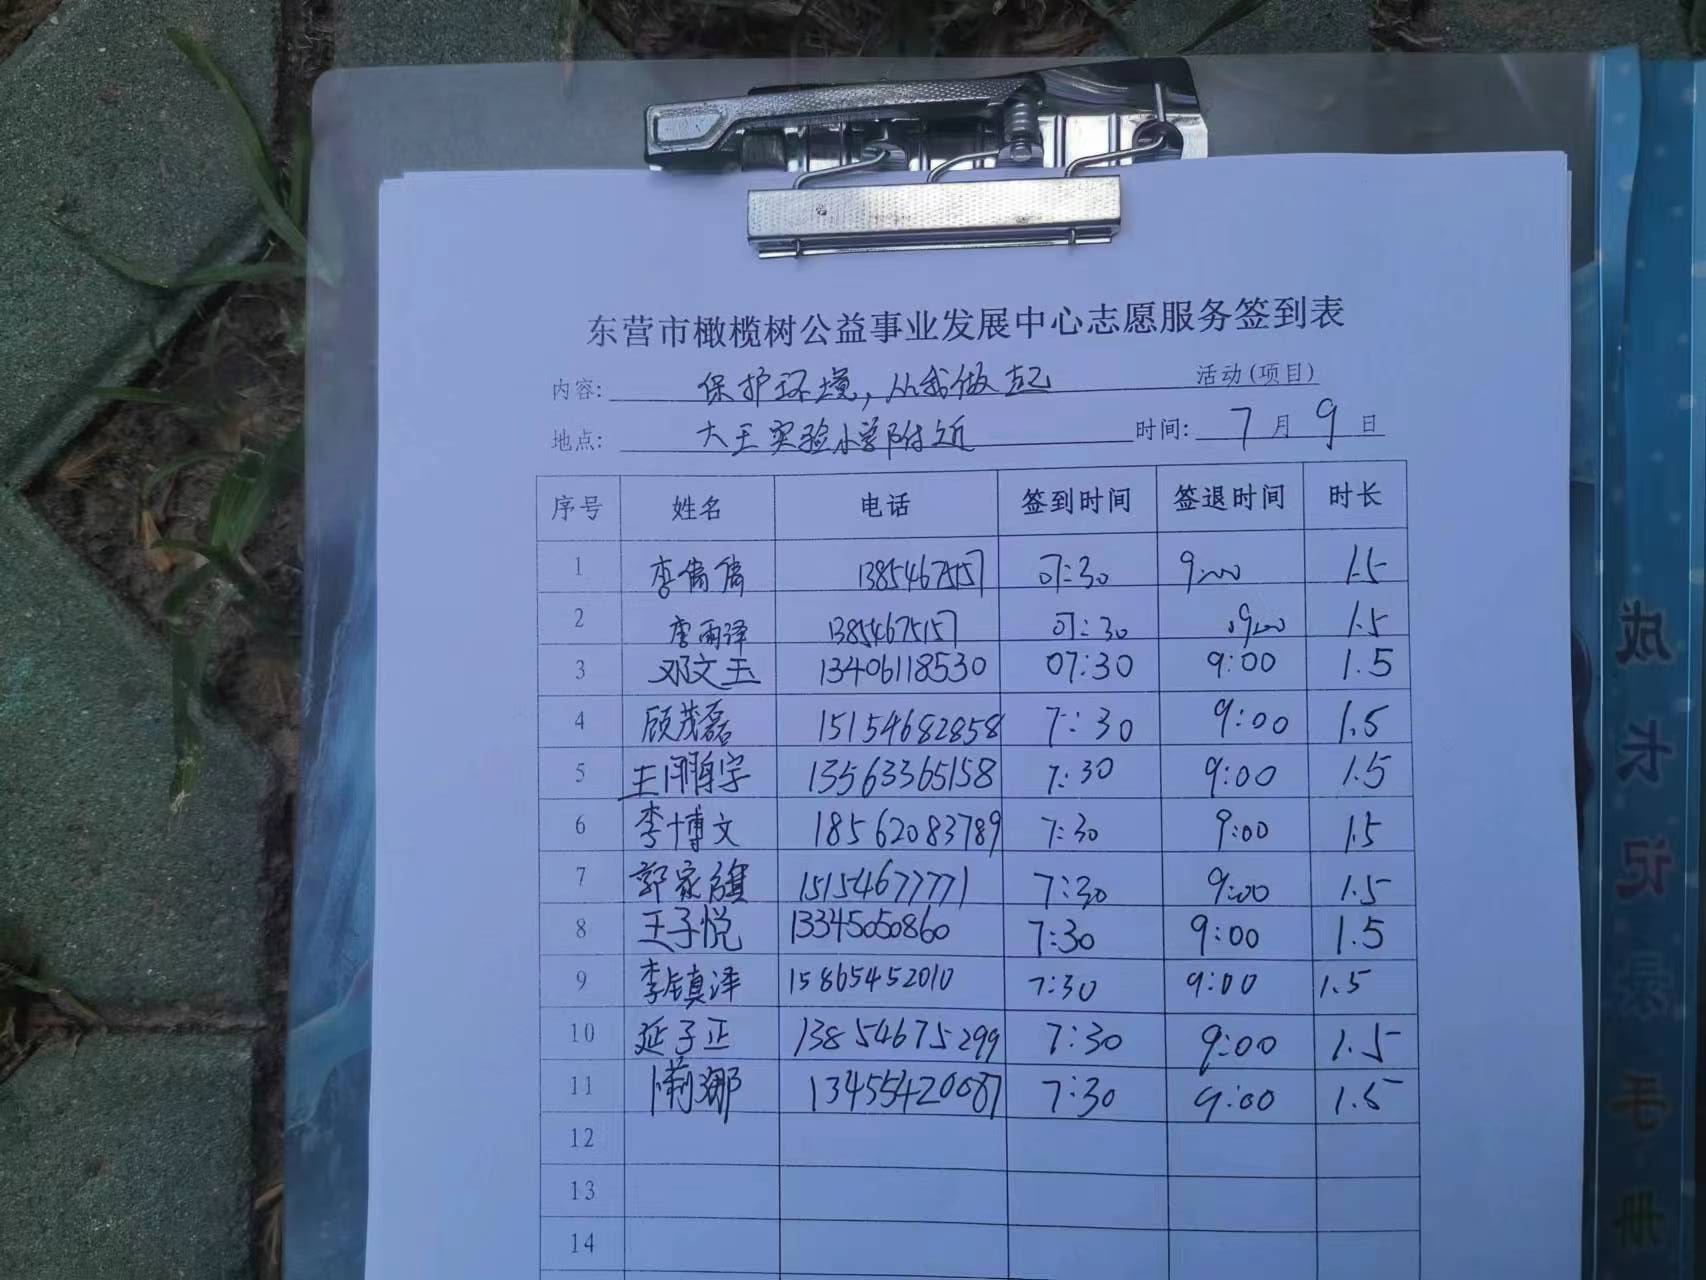 东营市橄榄树公益事业发展中心志愿服务签到表
内容: 保护环境,从我做起 活动(项目)
地点: 大王实验小学附近 时间: 7月9日
序号 姓名 电话 签到时间 签退时间 时长
1 李倩倩 13854675157 07:30 9:00 1.5
2 唐雨泽 13854675157 07:30 09:00 1.5
3 邓文玉 13406118530 07:30 9:00 1.5
4 顾茂磊 15154682858 7:30 9:00 1.5
5 王 宇 13563365158 7:30 9:00 1.5
6 李博文 18562083789 7:30 9:00 1.5
7 郭家旗 15154677771 7:30 9:00 1.5
8 王子悦 13345050860 7:30 9:00 1.5
9 李镇泽 15865452010 7:30 9:00 1.5
10 延子正 13854675299 7:30 9:00 1.5
11 娜 13455420087 7:30 9:00 1.5
12
13
14
成长记录手册